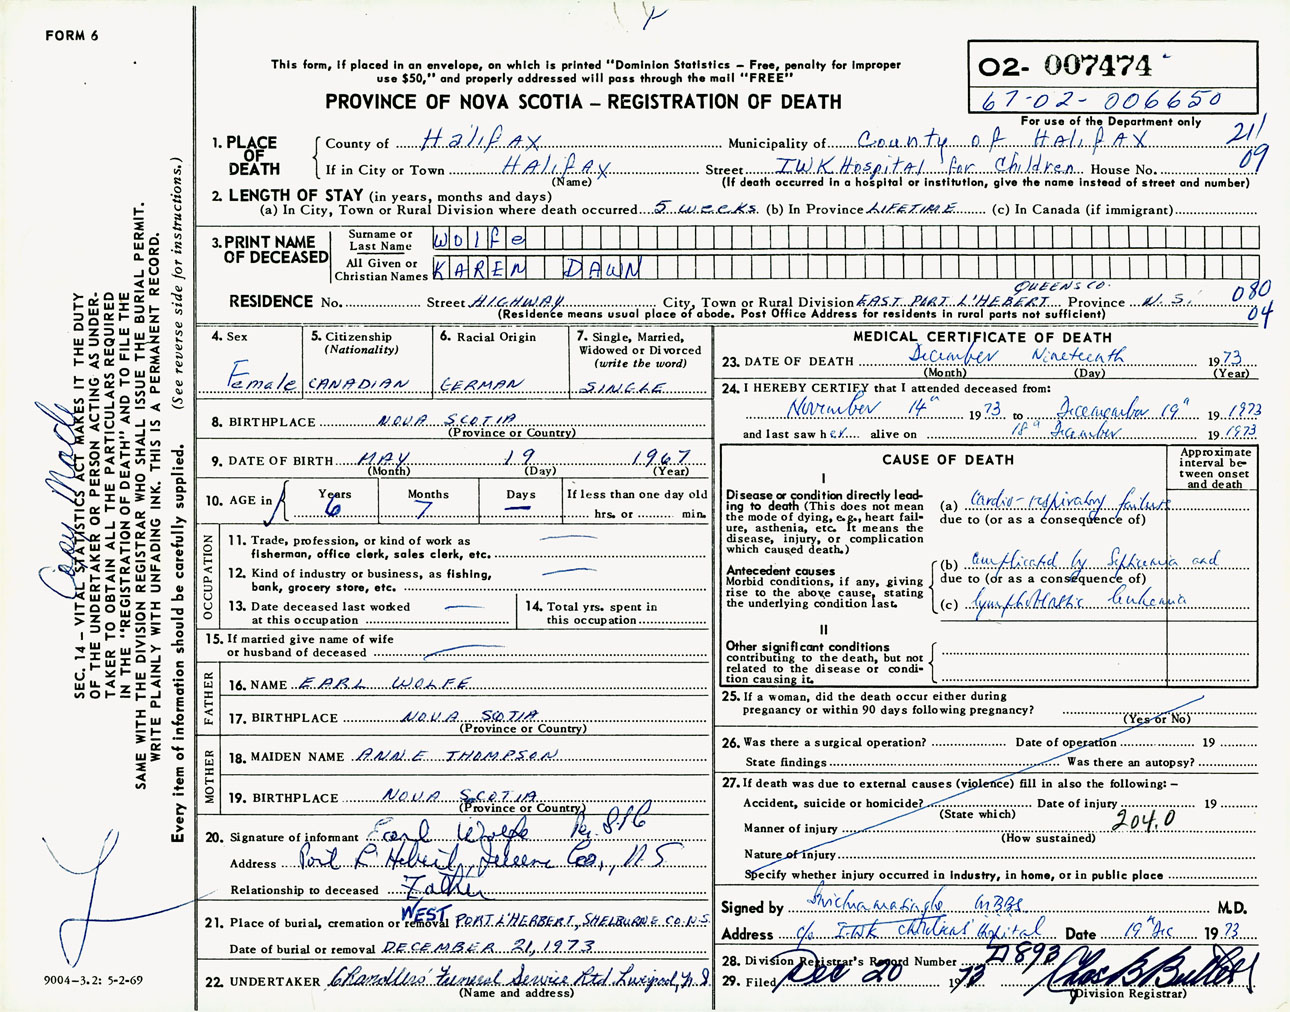 FORM 6
This form, if placed in an envelope, on which is printed "Dominion Statistics – Free, penalty for improper
use $50," and properly addressed will pass through the mail "FREE"
PROVINCE OF NOVA SCOTIA – REGISTRATION OF DEATH
02- 007474
67-02-006650
For use of the Department only
21/
09
1. PLACE OF DEATH
County of Halifax Municipality of County of Halifax
If in City or Town HALIFAX Street IWK Hospital for Children House No.
(Name) (If death occurred in a hospital or institution, give the name instead of street and number)
2. LENGTH OF STAY (in years, months and days)
(a) In City, Town or Rural Division where death occurred 5 weeks (b) In Province LIFETIME (c) In Canada (if immigrant)
3. PRINT NAME OF DECEASED
Surname or Last Name Wolfe
All Given or Christian Names KAREN DAWN
QUEENS CO.
RESIDENCE No. Street HIGHWAY City, Town or Rural Division EAST PORT L'HEBERT Province N.S.
(Residence means usual place of abode. Post Office Address for residents in rural parts not sufficient)
080
04
4. Sex
Female
5. Citizenship
(Nationality)
CANADIAN
6. Racial Origin
GERMAN
7. Single, Married,
Widowed or Divorced
(write the word)
SINGLE
8. BIRTHPLACE NOVA SCOTIA
(Province or Country)
9. DATE OF BIRTH MAY 19 1967
(Month) (Day) (Year)
10. AGE in
Years Months Days If less than one day old
6 7 — hrs. or min.
OCCUPATION
11. Trade, profession, or kind of work as
fisherman, office clerk, sales clerk, etc. —
12. Kind of industry or business, as fishing,
bank, grocery store, etc. —
13. Date deceased last worked
at this occupation —
14. Total yrs. spent in
this occupation
15. If married give name of wife
or husband of deceased —
FATHER
16. NAME EARL WOLFE
17. BIRTHPLACE NOVA SCOTIA
(Province or Country)
MOTHER
18. MAIDEN NAME ANNE THOMPSON
19. BIRTHPLACE NOVA SCOTIA
(Province or Country)
20. Signature of informant Earl Wolfe Per
Address Port L'Hebert, Co., N S
Relationship to deceased Father
21. Place of burial, cremation or removal WEST PORT L'HERBERT, SHELBURNE CO. N.S.
Date of burial or removal DECEMBER 21, 1973
22. UNDERTAKER Chandlers' Funeral Service Ltd Liverpool, N.S
(Name and address)
MEDICAL CERTIFICATE OF DEATH
23. DATE OF DEATH December Nineteenth 1973
(Month) (Day) (Year)
24. I HEREBY CERTIFY that I attended deceased from:
November 14" 1973 to Decemember 19" 19 1973
and last saw her alive on 18" December 19 1973
CAUSE OF DEATH
Approximate
interval be-
tween onset
and death
I
Disease or condition directly lead-
ing to death (This does not mean
the mode of dying, e.g., heart fail-
ure, asthenia, etc. It means the
disease, injury, or complication
which caused death.)
(a) Cardio-respiratory failure
due to (or as a consequence of)
Antecedent causes
Morbid conditions, if any, giving
rise to the above cause, stating
the underlying condition last.
(b) complicated by Septicemia and
due to (or as a consequence of)
(c) lymphoblastic leukemia
II
Other significant conditions
contributing to the death, but not
related to the disease or condi-
tion causing it.
25. If a woman, did the death occur either during
pregnancy or within 90 days following pregnancy?
(Yes or No)
26. Was there a surgical operation? Date of operation 19
State findings Was there an autopsy?
27. If death was due to external causes (violence) fill in also the following: –
Accident, suicide or homicide? Date of injury 19
(State which)
204.0
Manner of injury
(How sustained)
Nature of injury
Specify whether injury occurred in industry, in home, or in public place
Signed by MBBS M.D.
Address c/o I.W.K Children's Hospital Date 19" Dec 1973
28. Division Registrar's Record Number 893
29. Filed Dec 20 1973
(Division Registrar)
SEC. 14 – VITAL STATISTICS ACT MAKES IT THE DUTY
OF THE UNDERTAKER OR PERSON ACTING AS UNDER-
TAKER TO OBTAIN ALL THE PARTICULARS REQUIRED
IN THE "REGISTRATION OF DEATH" AND TO FILE THE
SAME WITH THE DIVISION REGISTRAR WHO SHALL ISSUE THE BURIAL PERMIT.
WRITE PLAINLY WITH UNFADING INK. THIS IS A PERMANENT RECORD.
Every item of information should be carefully supplied. (See reverse side for instructions.)
Copy Made
9004-3.2: 5-2-69